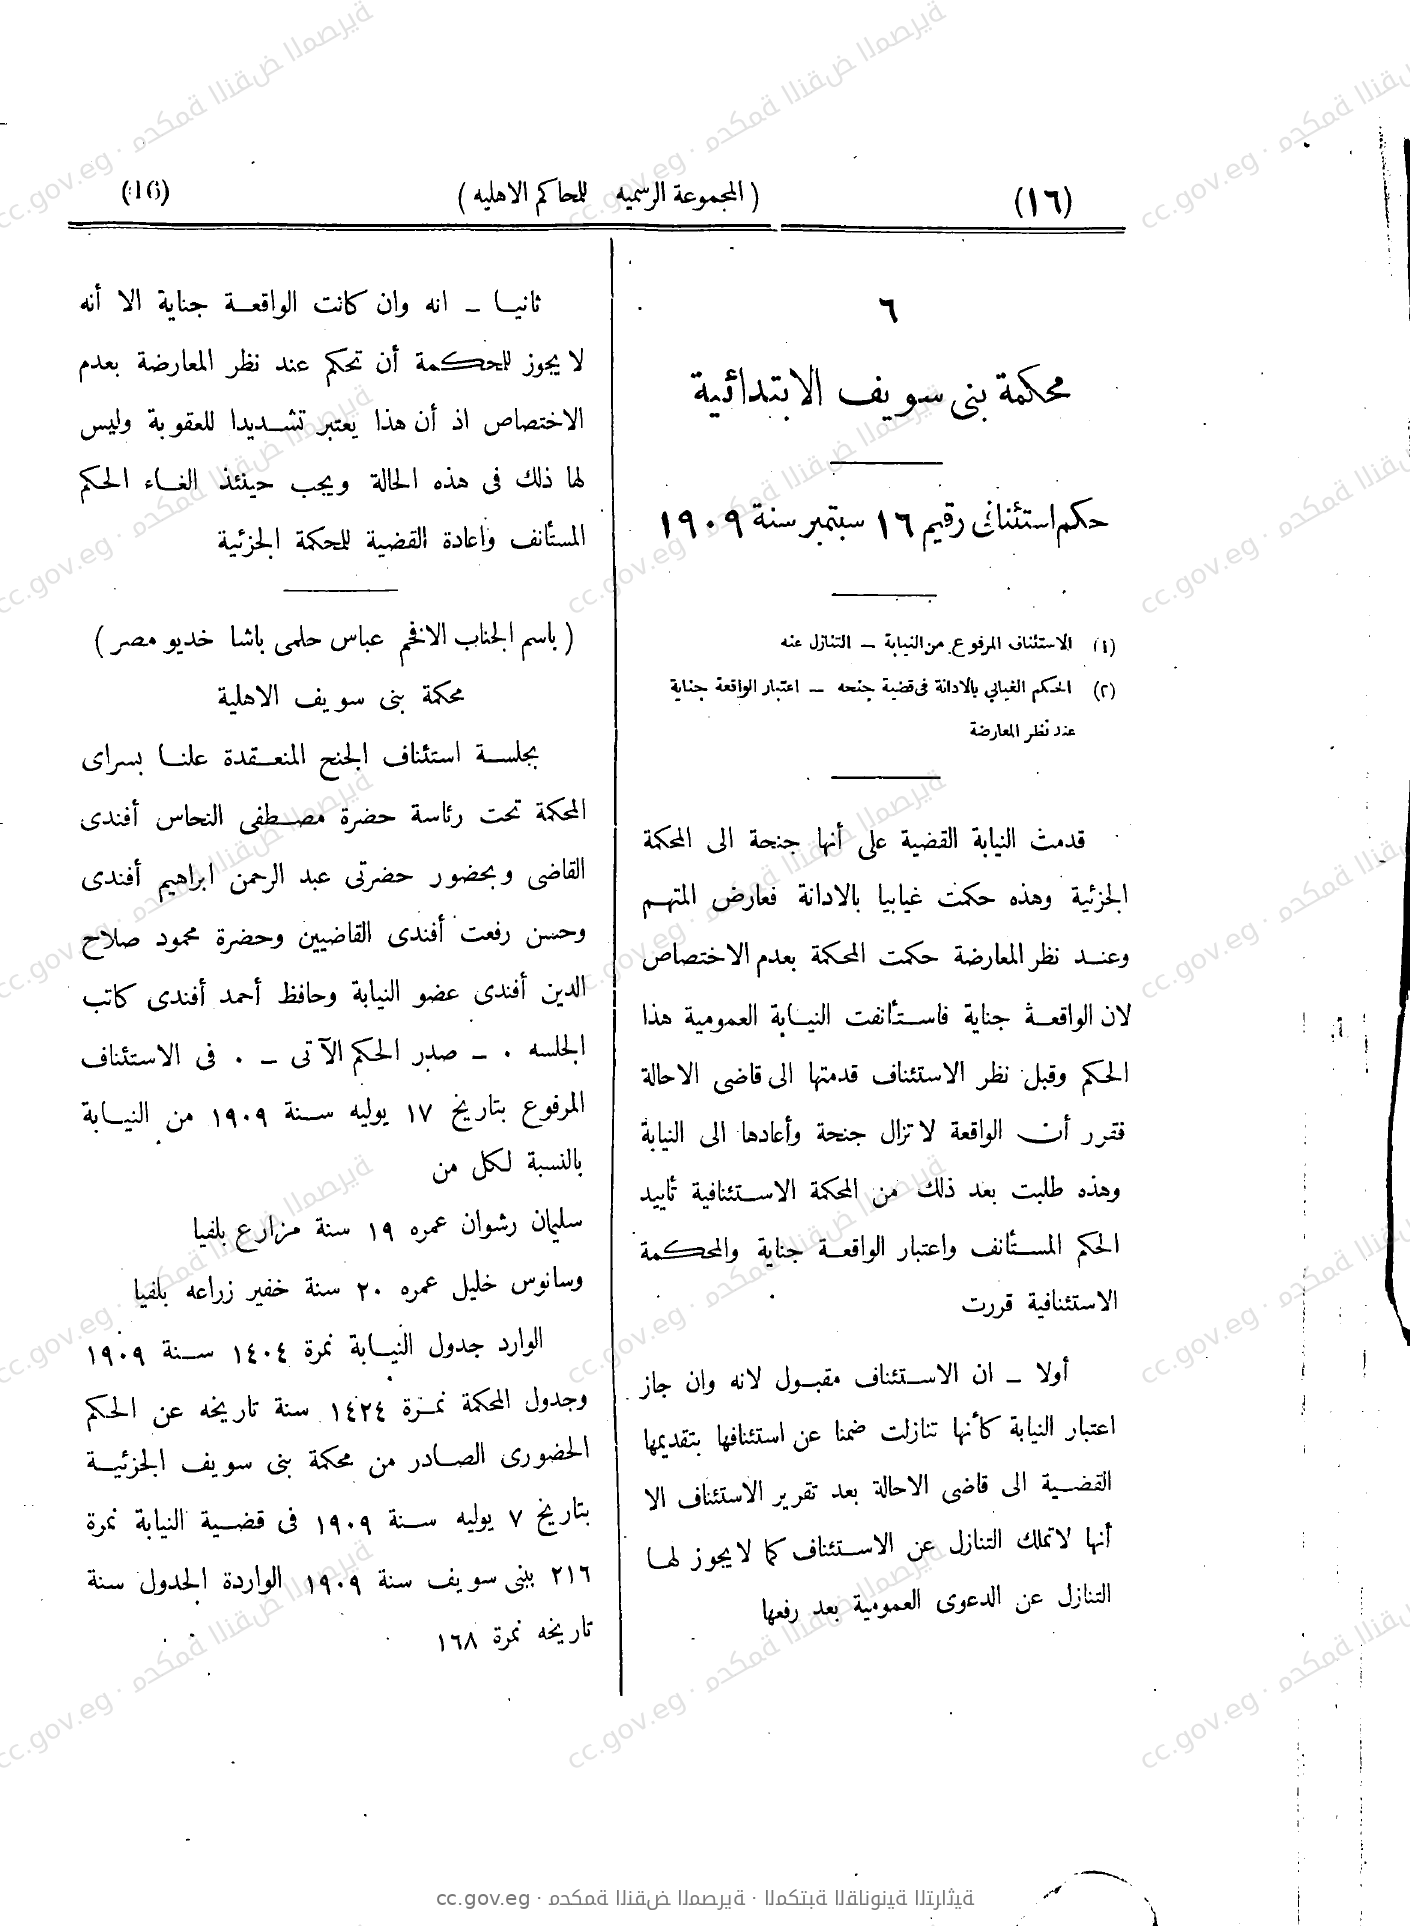 (١٦)
( المجموعة الرسميه للمحاكم الاهليه )
(16)
٦
محكمة بنى سويف الابتدائية
حكم استئنافى رقيم ١٦ سبتمبر سنة ١٩٠٩
(١) الاستئناف المرفوع من النيابة — التنازل عنه
(٢) الحكم الغيابي بالادانة فى قضية جنحه — اعتبار الواقعة جناية
عند نظر المعارضة
قدمت النيابة القضية على أنها جنحة الى المحكمة
الجزئية وهذه حكمت غيابيا بالادانة فعارض المتهم
وعند نظر المعارضة حكمت المحكمة بعدم الاختصاص
لان الواقعة جناية فاستأنفت النيابة العمومية هذا
الحكم وقبل نظر الاستئناف قدمتها الى قاضى الاحالة
فقرر أن الواقعة لا تزال جنحة وأعادها الى النيابة
وهذه طلبت بعد ذلك من المحكمة الاستئنافية تأييد
الحكم المستأنف واعتبار الواقعة جناية والمحكمة
الاستئنافية قررت
أولا — ان الاستئناف مقبول لانه وان جاز
اعتبار النيابة كأنها تنازلت ضمنا عن استئنافها بتقديمها
القضية الى قاضى الاحالة بعد تقرير الاستئناف الا
أنها لاتملك التنازل عن الاستئناف كما لايجوز لها
التنازل عن الدعوى العمومية بعد رفعها
ثانيا — انه وان كانت الواقعة جناية الا أنه
لا يجوز للمحكمة أن تحكم عند نظر المعارضة بعدم
الاختصاص اذ أن هذا يعتبر تشديدا للعقوبة وليس
لها ذلك فى هذه الحالة ويجب حينئذ الغاء الحكم
المستأنف واعادة القضية للمحكمة الجزئية
( باسم الجناب الافخم عباس حلمى باشا خديو مصر )
محكمة بنى سويف الاهلية
بجلسة استئناف الجنح المنعقدة علنا بسراى
المحكمة تحت رئاسة حضرة مصطفى النحاس أفندى
القاضى وبحضور حضرتى عبد الرحمن ابراهيم أفندى
وحسن رفعت أفندى القاضيين وحضرة محمود صلاح
الدين أفندى عضو النيابة وحافظ أحمد أفندى كاتب
الجلسه . — صدر الحكم الآتى — . فى الاستئناف
المرفوع بتاريخ ١٧ يوليه سنة ١٩٠٩ من النيابة
بالنسبة لكل من
سليمان رشوان عمره ١٩ سنة مزارع بلفيا
وسانوس خليل عمره ٢٠ سنة خفير زراعه بلفيا
الوارد جدول النيابة نمرة ١٤٠٤ سنة ١٩٠٩
وجدول المحكمة نمرة ١٤٢٤ سنة تاريخه عن الحكم
الحضورى الصادر من محكمة بنى سويف الجزئية
بتاريخ ٧ يوليه سنة ١٩٠٩ فى قضية النيابة نمرة
٢١٦ ببنى سويف سنة ١٩٠٩ الواردة الجدول سنة
تاريخه نمرة ١٦٨
cc.gov.eg · محكمة النقض المصرية · المكتبة القانونية التراثية